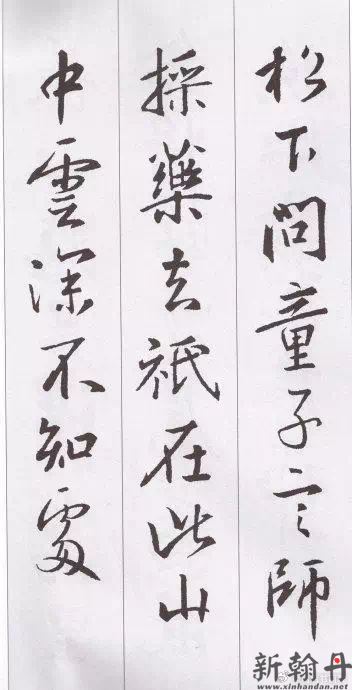 松下問童子言師
採藥去祇在此山
中雲深不知處
新翰丹
www.xinhandan.net